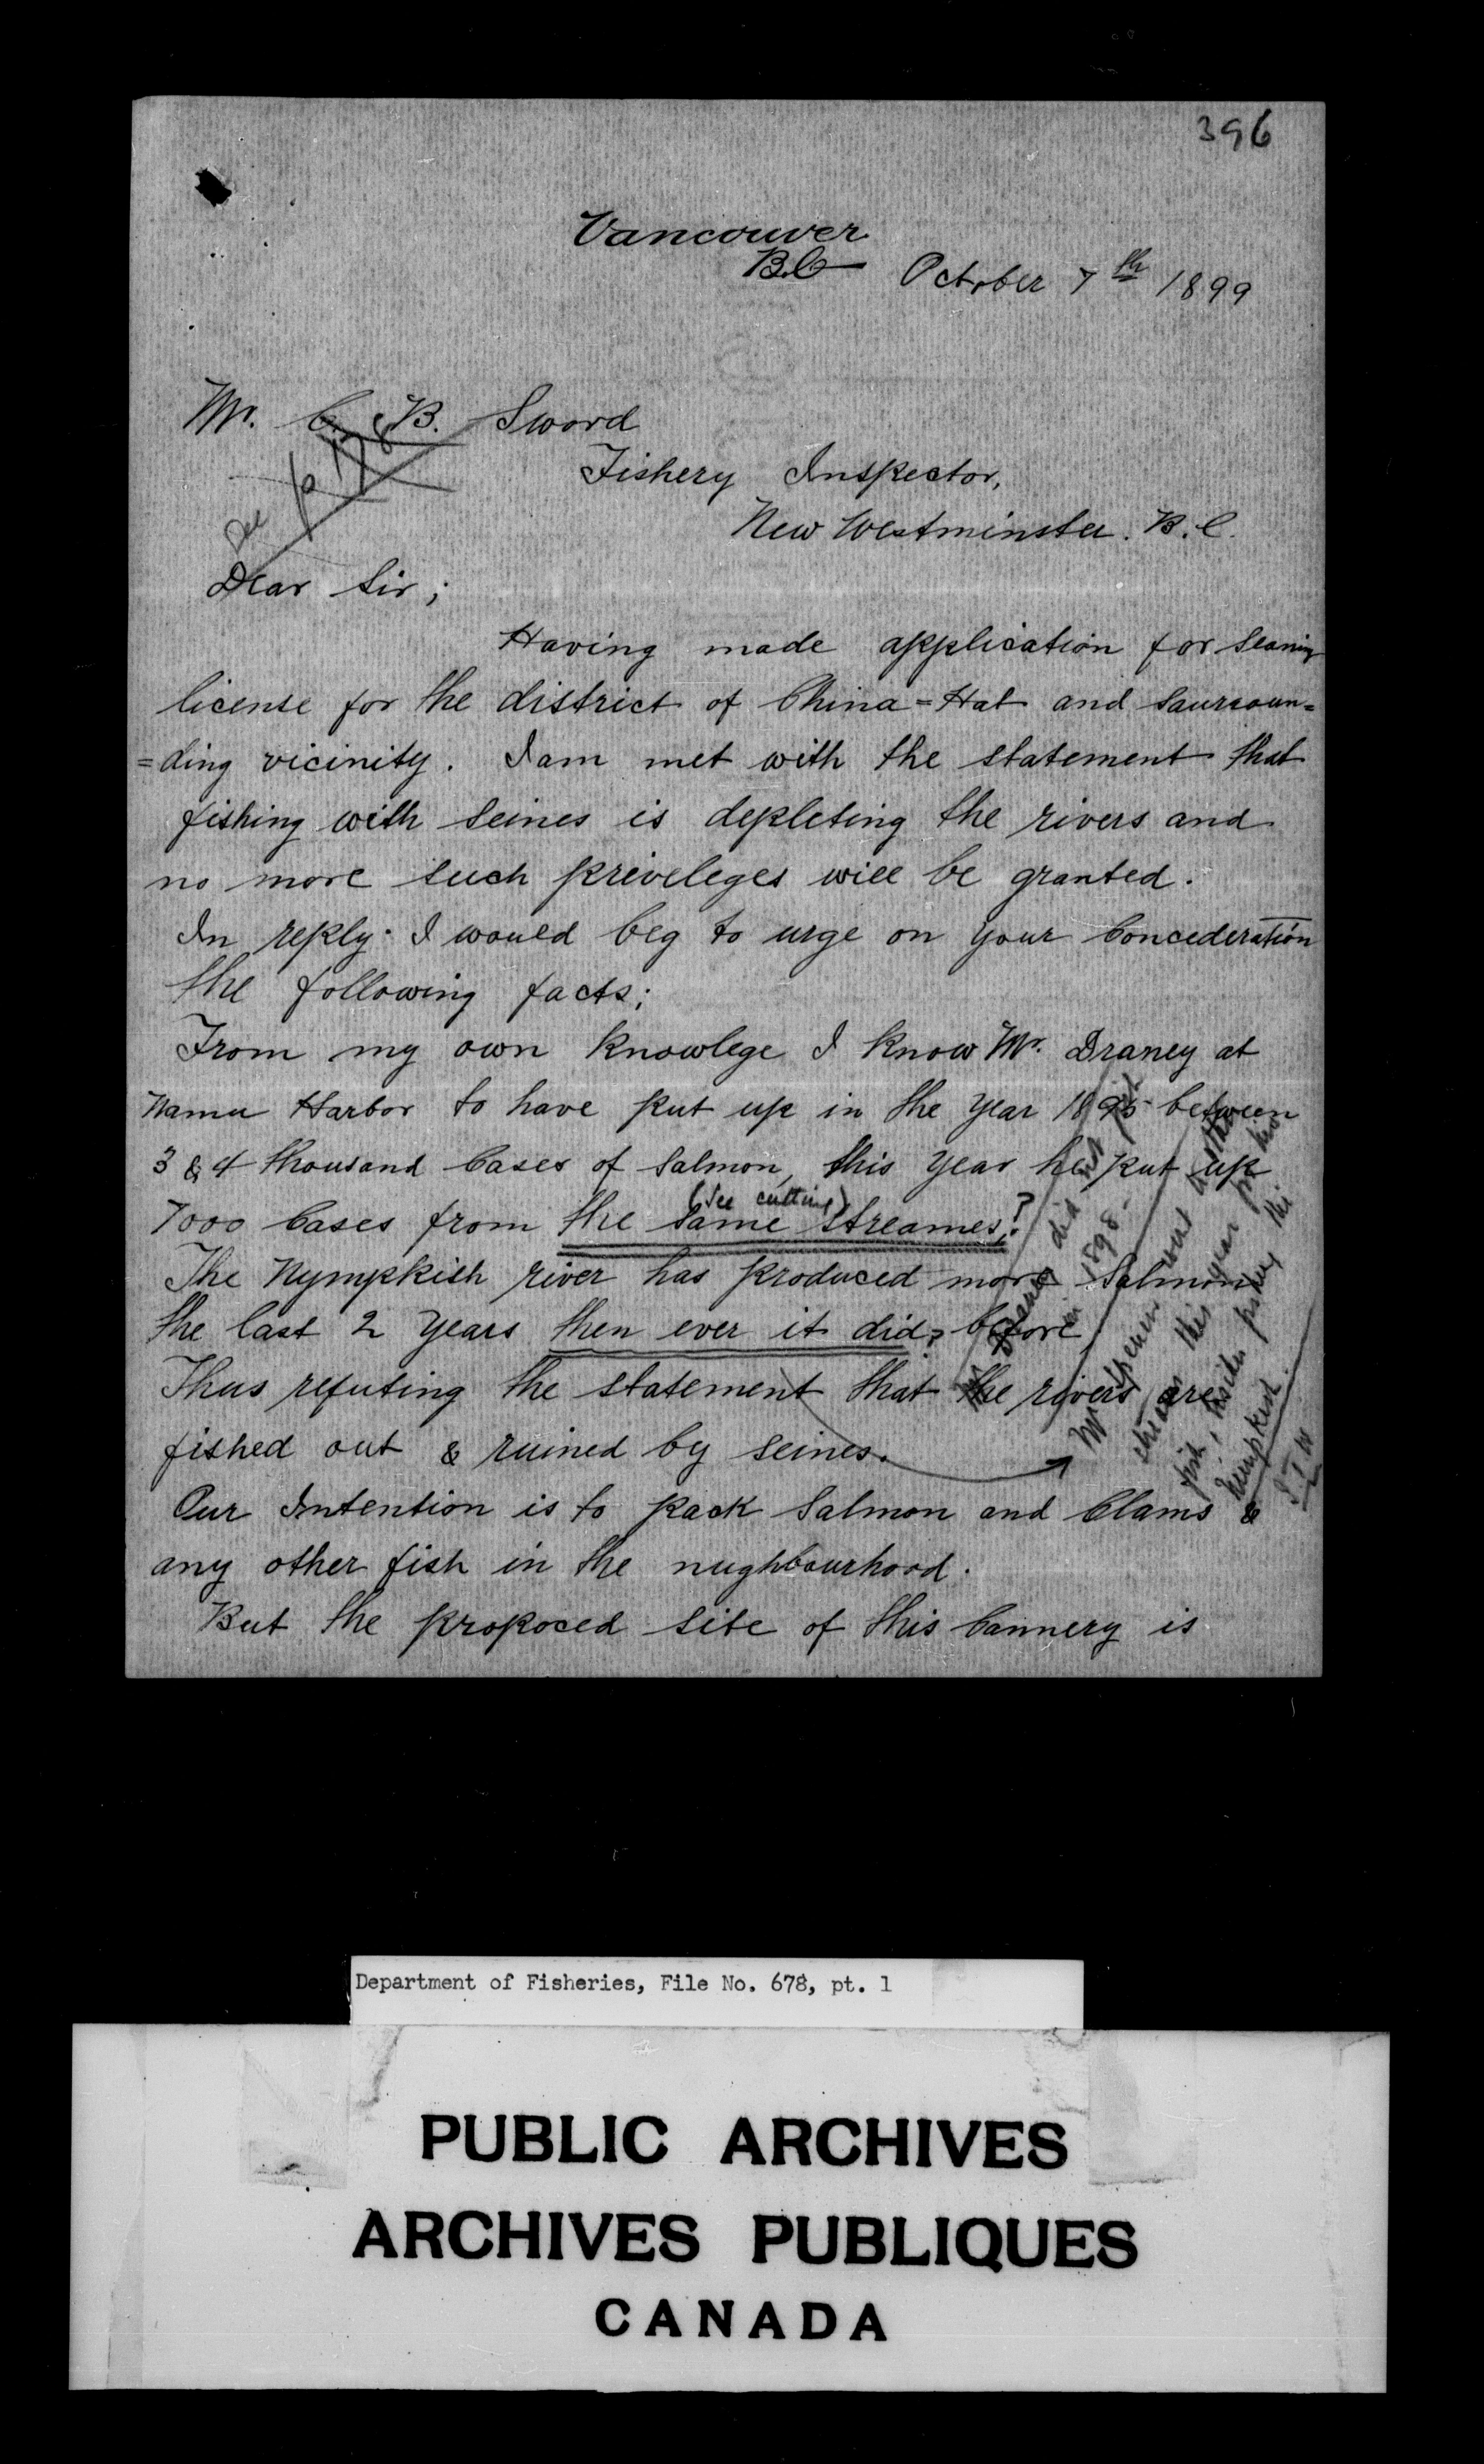 396
Vancouver
B.C. October 7th 1899
Mr. C. B. Sword
Fishery Inspector,
New Westminster. B.C.
Dear Sir;
Having made application for Seaning
license for the district of China=Hat and saurroun=
=ding vicinity. I am met with the statement that
fishing with seines is depleting the rivers and
no more such priveleges will be granted.
In reply I would beg to urge on your Concederation
the following facts;
From my own knowlege I know Mr. Draney at
Namu Harbor to have put up in the year 1895 between
3 & 4 thousand Cases of Salmon, this year he put up
(See cutting)
7000 Cases from the same streames;?
The Nympkish river has produced more Salmon
the last 2 years then ever it did? before
Thus refuting the statement that the rivers are
fished out & ruined by seines.
Our Intention is to pack Salmon and Clams &
any other fish in the nughbourhood.
But the propoced site of this Cannery is
Mr did not fish
in 1898.
Mr Spencer
streams this year for his
fish, besides fishing the
Nimpkish
Department of Fisheries, File No. 678, pt. 1
PUBLIC ARCHIVES
ARCHIVES PUBLIQUES
CANADA